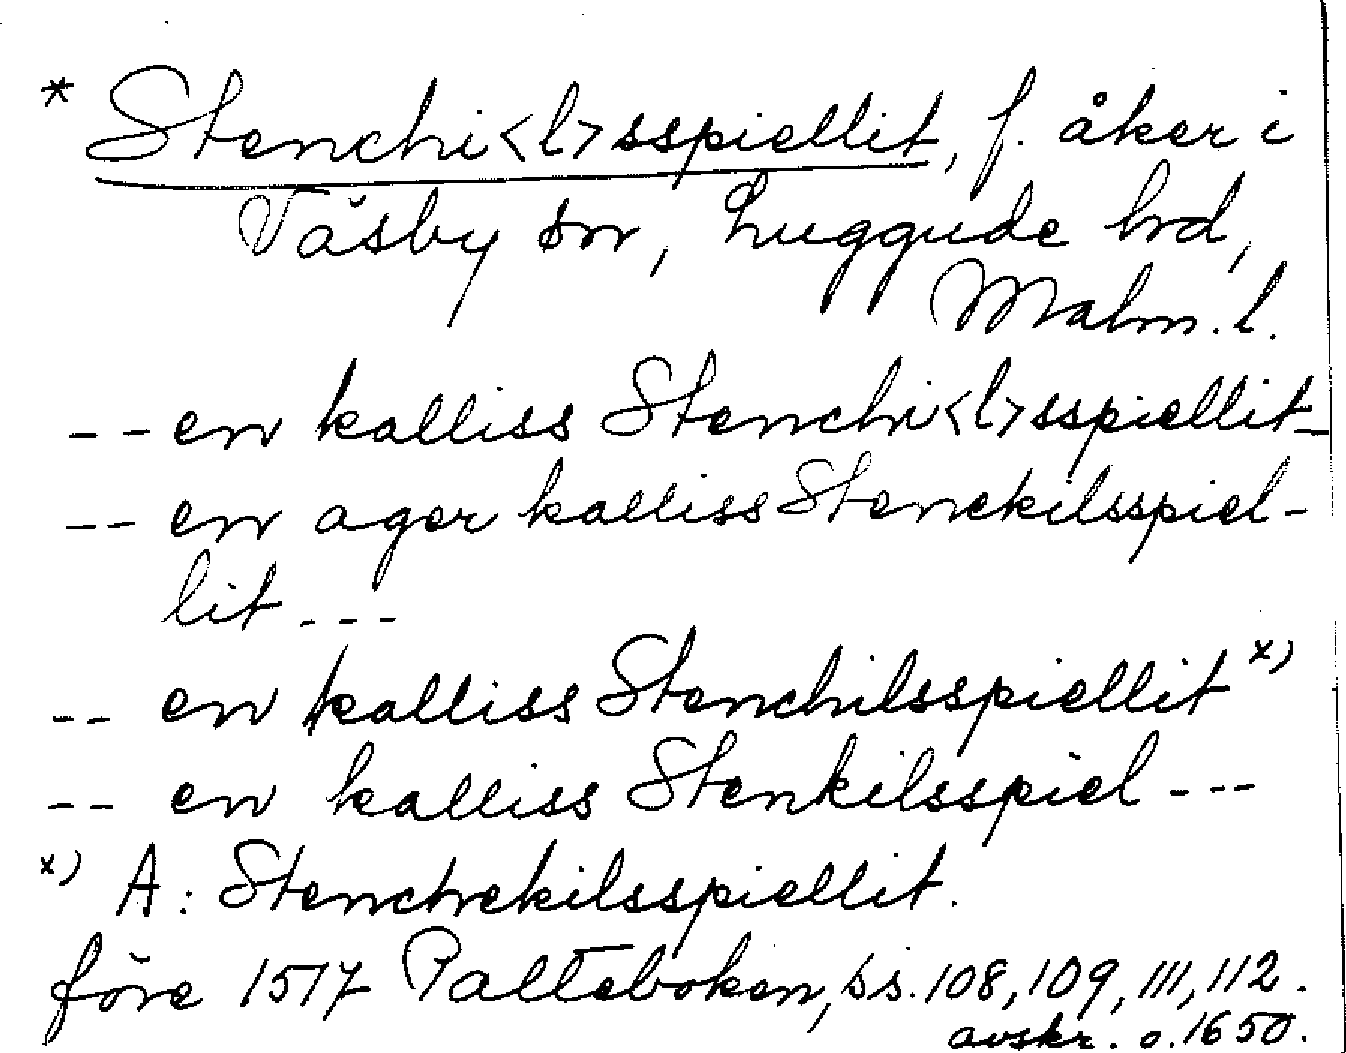 * Stenchi<l>sspiellit, f. åker i
Väsby sn, Luggude hd,
Malm. l.
-- en kalliss Stenchi<l>sspiellit-
-- en ager kalliss Stenckilsspiel-
lit ---
-- en kalliss Stenchilsspiellit x)
-- en kalliss Stenkilsspiel ---
x) A: Stenchekilsspiellit.
före 1517 Palteboken, ss. 108, 109, 111, 112.
avskr. o. 1650.